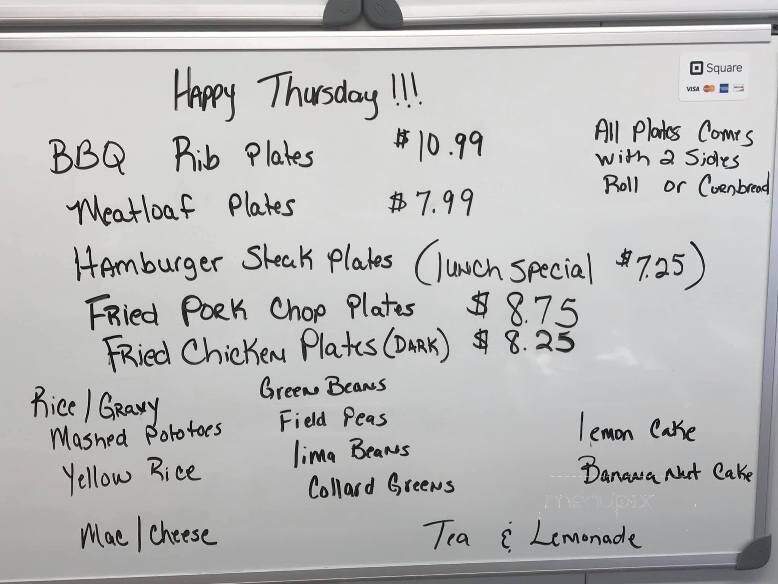 Happy Thursday!!!
Square
VISA
BBQ Rib Plates $10.99
All Plates Comes
with 2 Sides
Roll or Cornbread
Meatloaf Plates $7.99
Hamburger Steak Plates (lunch Special $7.25)
Fried Pork Chop Plates $8.75
Fried Chicken Plates (DARK) $8.25
Rice/Gravy
Mashed Pototoes
Yellow Rice
Mac/Cheese
Green Beans
Field Peas
lima Beans
Collard Greens
lemon Cake
Banana Nut Cake
Tea & Lemonade